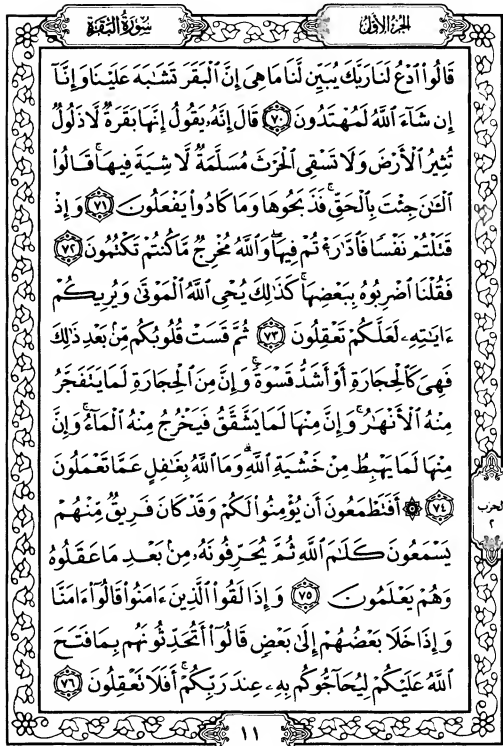 سُورَةُ البَقَرَةِ
الجُزءُ الأَوَّلُ
قَالُوا۟ ٱدْعُ لَنَا رَبَّكَ يُبَيِّن لَّنَا مَا هِىَ إِنَّ ٱلْبَقَرَ تَشَٰبَهَ عَلَيْنَا وَإِنَّآ
إِن شَآءَ ٱللَّهُ لَمُهْتَدُونَ ٧٠ قَالَ إِنَّهُۥ يَقُولُ إِنَّهَا بَقَرَةٌ لَّا ذَلُولٌ
تُثِيرُ ٱلْأَرْضَ وَلَا تَسْقِى ٱلْحَرْثَ مُسَلَّمَةٌ لَّا شِيَةَ فِيهَا ۚ قَالُوا۟
ٱلْـَٰٔنَ جِئْتَ بِٱلْحَقِّ ۚ فَذَبَحُوهَا وَمَا كَادُوا۟ يَفْعَلُونَ ٧١ وَإِذْ
قَتَلْتُمْ نَفْسًا فَٱدَّٰرَْٰٔتُمْ فِيهَا ۖ وَٱللَّهُ مُخْرِجٌ مَّا كُنتُمْ تَكْتُمُونَ ٧٢
فَقُلْنَا ٱضْرِبُوهُ بِبَعْضِهَا ۚ كَذَٰلِكَ يُحْىِ ٱللَّهُ ٱلْمَوْتَىٰ وَيُرِيكُمْ
ءَايَٰتِهِۦ لَعَلَّكُمْ تَعْقِلُونَ ٧٣ ثُمَّ قَسَتْ قُلُوبُكُم مِّنۢ بَعْدِ ذَٰلِكَ
فَهِىَ كَٱلْحِجَارَةِ أَوْ أَشَدُّ قَسْوَةً ۚ وَإِنَّ مِنَ ٱلْحِجَارَةِ لَمَا يَتَفَجَّرُ
مِنْهُ ٱلْأَنْهَٰرُ ۚ وَإِنَّ مِنْهَا لَمَا يَشَّقَّقُ فَيَخْرُجُ مِنْهُ ٱلْمَآءُ ۚ وَإِنَّ
مِنْهَا لَمَا يَهْبِطُ مِنْ خَشْيَةِ ٱللَّهِ ۗ وَمَا ٱللَّهُ بِغَٰفِلٍ عَمَّا تَعْمَلُونَ
٧٤ ۞ أَفَتَطْمَعُونَ أَن يُؤْمِنُوا۟ لَكُمْ وَقَدْ كَانَ فَرِيقٌ مِّنْهُمْ
الحزب
٢
يَسْمَعُونَ كَلَٰمَ ٱللَّهِ ثُمَّ يُحَرِّفُونَهُۥ مِنۢ بَعْدِ مَا عَقَلُوهُ
وَهُمْ يَعْلَمُونَ ٧٥ وَإِذَا لَقُوا۟ ٱلَّذِينَ ءَامَنُوا۟ قَالُوٓا۟ ءَامَنَّا
وَإِذَا خَلَا بَعْضُهُمْ إِلَىٰ بَعْضٍ قَالُوٓا۟ أَتُحَدِّثُونَهُم بِمَا فَتَحَ
ٱللَّهُ عَلَيْكُمْ لِيُحَآجُّوكُم بِهِۦ عِندَ رَبِّكُمْ ۚ أَفَلَا تَعْقِلُونَ ٧٦
١١